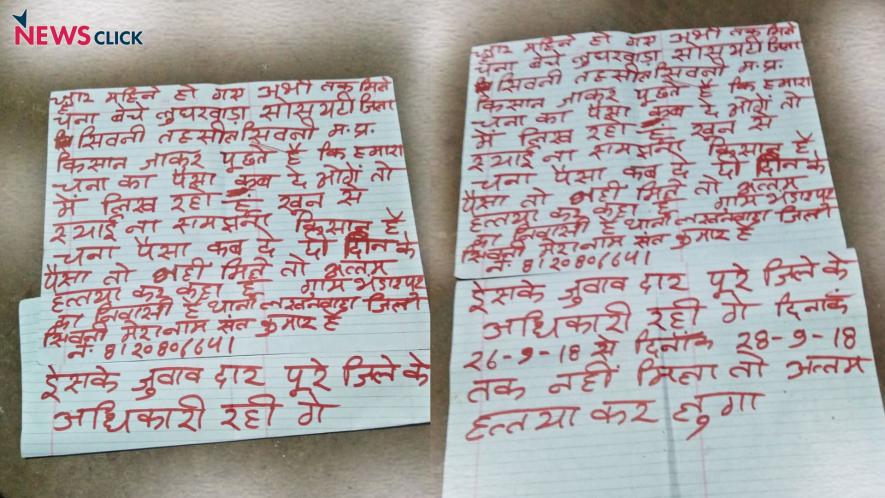 NEWSCLICK
चार महिने हो गए अभी तक मिले
चना बेचे लुघरवाड़ा सोसायटी जिला
सिवनी तहसील सिवनी म.प्र.
किसान जाकर पूछते है कि हमारा
चना का पैसा कब दे भोगे तो
में लिख रहा हूं खून से
स्याई ना समझना किसान है
चना पैसा कब दे दो दिन के
पैसा तो नहीं मिले तो अत्तम
हत्तया कर गाम भंडारपुर
का निवासी है थाना लखनवाड़ा जिला
सिवनी मेरा नाम संत कुमार है
नं. 8120806641
ईसके जुवाब दार पूरे जिले के
अधिकारी रही गे
चार महिने हो गए अभी तक मिले
चना बेचे लुघरवाड़ा सोसायटी जिला
सिवनी तहसील सिवनी म.प्र.
किसान जाकर पूछते है कि हमारा
चना का पैसा कब दे भोगे तो
में लिख रहा हूं खून से
स्याई ना समझना किसान है
चना पैसा कब दे दो दिन के
पैसा तो नहीं मिले तो अत्तम
हत्तया कर गाम भंडारपुर
का निवासी है थाना लखनवाड़ा जिला
सिवनी मेरा नाम संत कुमार है
नं. 8120806641
ईसके जुवाब दार पूरे जिले के
अधिकारी रही गे दिनांक
26-9-18 से दिनांक 28-9-18
तक नहीं मिला तो अत्तम
हत्तया कर लुगा